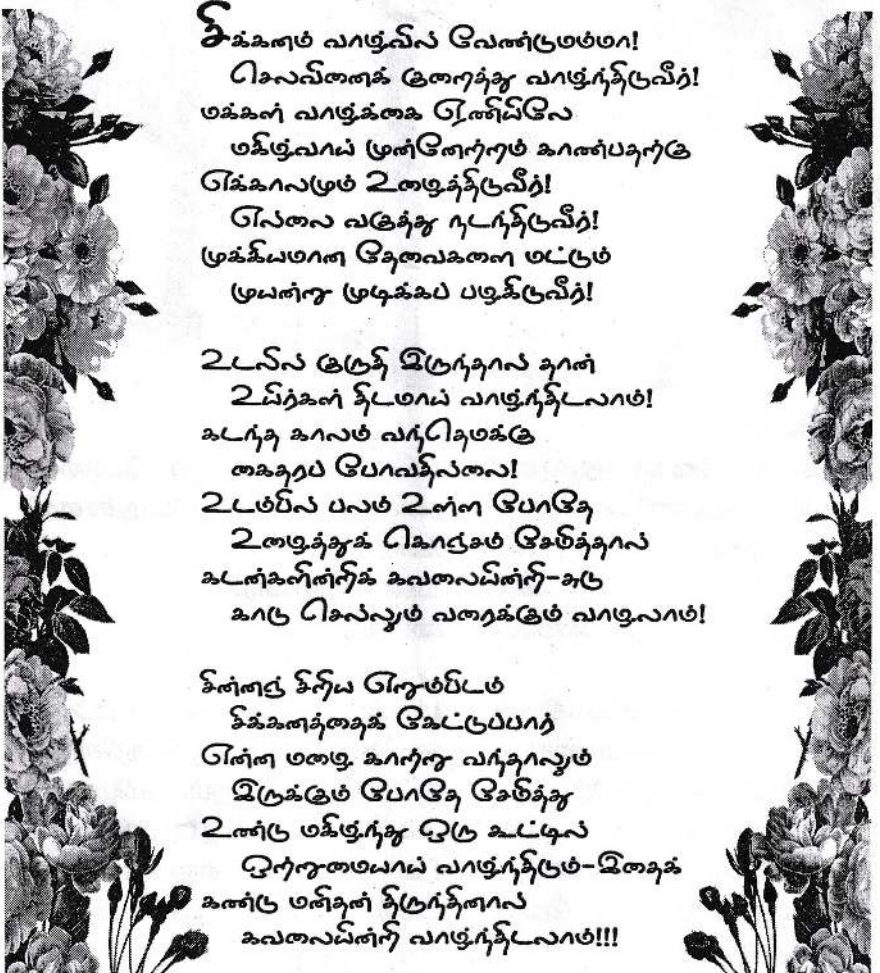 சிக்கனம் வாழ்வில் வேண்டுமம்மா!
செலவினைக் குறைத்து வாழ்ந்திடுவீர்!
மக்கள் வாழ்க்கை ஏணியிலே
மகிழ்வாய் முன்னேற்றம் காண்பதற்கு
எக்காலமும் உழைத்திடுவீர்!
எல்லை வகுத்து நடந்திடுவீர்!
முக்கியமான தேவைகளை மட்டும்
முயன்று முடிக்கப் பழகிடுவீர்!
உடலில் குருதி இருந்தால் தான்
உயிர்கள் திடமாய் வாழ்ந்திடலாம்!
கடந்த காலம் வந்தெமக்கு
கைதரப் போவதில்லை!
உடம்பில் பலம் உள்ள போதே
உழைத்துக் கொஞ்சம் சேமித்தால்
கடன்களின்றிக் கவலையின்றி-சுடு
காடு செல்லும் வரைக்கும் வாழலாம்!
சின்னஞ் சிறிய எறும்பிடம்
சிக்கனத்தைக் கேட்டுப்பார்
என்ன மழை காற்று வந்தாலும்
இருக்கும் போதே சேமித்து
உண்டு மகிழ்ந்து ஒரு கூட்டில்
ஒற்றுமையாய் வாழ்ந்திடும்-இதைக்
கண்டு மனிதன் திருந்தினால்
கவலையின்றி வாழ்ந்திடலாம்!!!